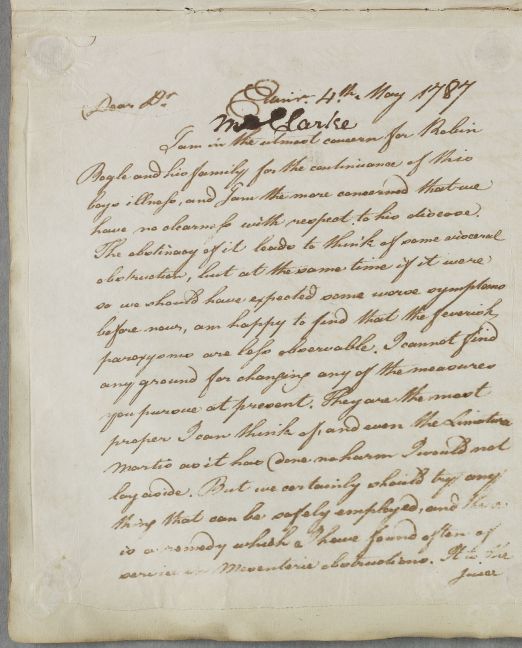 Edinr. 4th. May 1787
Dear Dr.
Mr Clarke
I am in the utmost concern for Robin
Bogle and his family for the continuance of this
boys illness, and I am the more concerned that we
have no clearness with respect to his disease.
The obstinacy of it leads to think of some visceral
obstruction, but at the same time if it were
so we should have expected some worse symptoms
before now, am happy to find that the feverish
paroxysms are less observable. I cannot find
any ground for changing any of the measures
you pursue at present. They are the most
proper I can think of, and even the Limatura
Martis as it has done no harm I would not
lay aside. But we certainly should try any
thing that can be safely employed, and there
is a remedy which I have found often of
service in Mesenteric obstructions. It is the
Juice